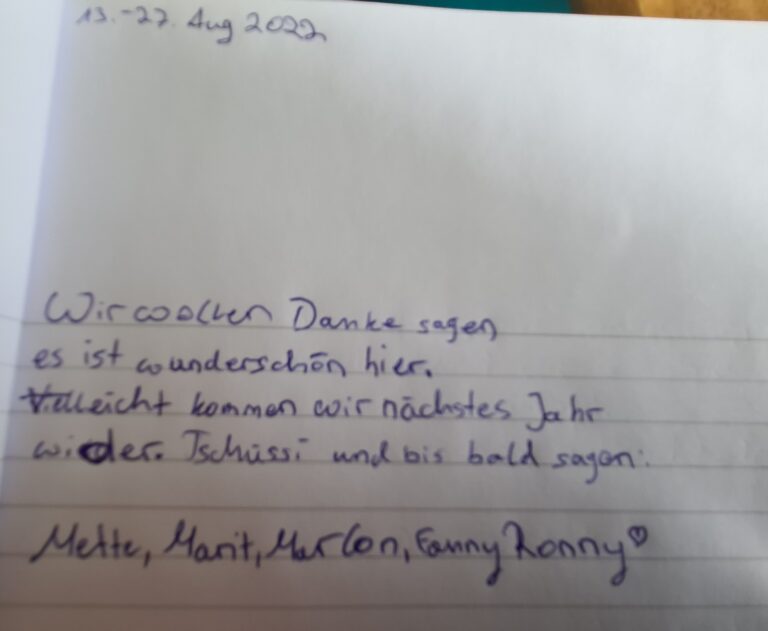 13.-27. Aug 2022
Wir wollen Danke sagen
es ist wunderschön hier.
Villeicht kommen wir nächstes Jahr
wider. Tschüssi und bis bald sagen:
Mette, Marit, Marlon, Fanny Ronny♡